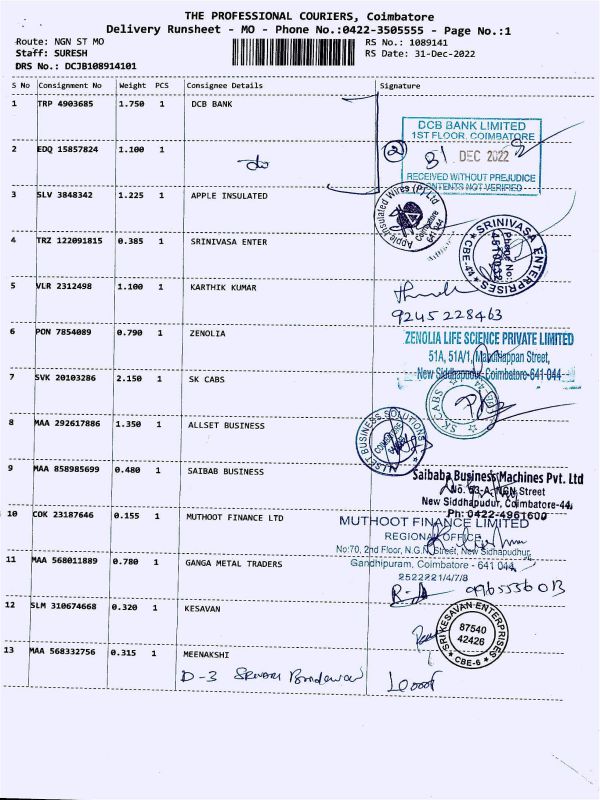 THE PROFESSIONAL COURIERS, Coimbatore
Delivery Runsheet - MO - Phone No.:0422-3505555 - Page No.:1
Route: NGN ST MO
RS No.: 1089141
Staff: SURESH
RS Date: 31-Dec-2022
DRS No.: DCJB108914101
S No Consignment No Weight PCS Consignee Details Signature
1 TRP 4903685 1.750 1 DCB BANK
DCB BANK LIMITED
1ST FLOOR, COIMBATORE
2 EDQ 15857824 1.100 1
do
2
31 DEC 2022
RECEIVED WITHOUT PREJUDICE
CONTENTS NOT VERIFIED
3 SLV 3848342 1.225 1 APPLE INSULATED
Apple Insulated Wires (P) Ltd
Coimbatore
641 044
4 TRZ 122091815 0.385 1 SRINIVASA ENTER
SRINIVASA ENTERPRISES
CBE-44
Phone No:
5 VLR 2312498 1.100 1 KARTHIK KUMAR
9245228463
6 PON 7854089 0.790 1 ZENOLIA
ZENOLIA LIFE SCIENCE PRIVATE LIMITED
51A, 51A/1, Street,
New Siddhapudur, Coimbatore-641 044
7 SVK 20103286 2.150 1 SK CABS
SK CABS
8 MAA 292617886 1.350 1 ALLSET BUSINESS
ALLSET BUSINESS SOLUTIONS
9 MAA 858985699 0.480 1 SAIBAB BUSINESS
Saibaba Business Machines Pvt. Ltd
No. 63-A, NGN Street
New Siddhapudur, Coimbatore-44
Ph: 0422-4961600
10 COK 23187646 0.155 1 MUTHOOT FINANCE LTD
MUTHOOT FINANCE LIMITED
REGIONAL OFFICE
No:70, 2nd Floor, N.G.N. Street, New Sidhapudhur,
Gandhipuram, Coimbatore - 641 044
2522221/4/7/8
11 MAA 568011889 0.780 1 GANGA METAL TRADERS
12 SLM 310674668 0.320 1 KESAVAN
SRI KESAVAN ENTERPRISES
87540
42426
CBE-6
13 MAA 568332756 0.315 1 MEENAKSHI
D-3